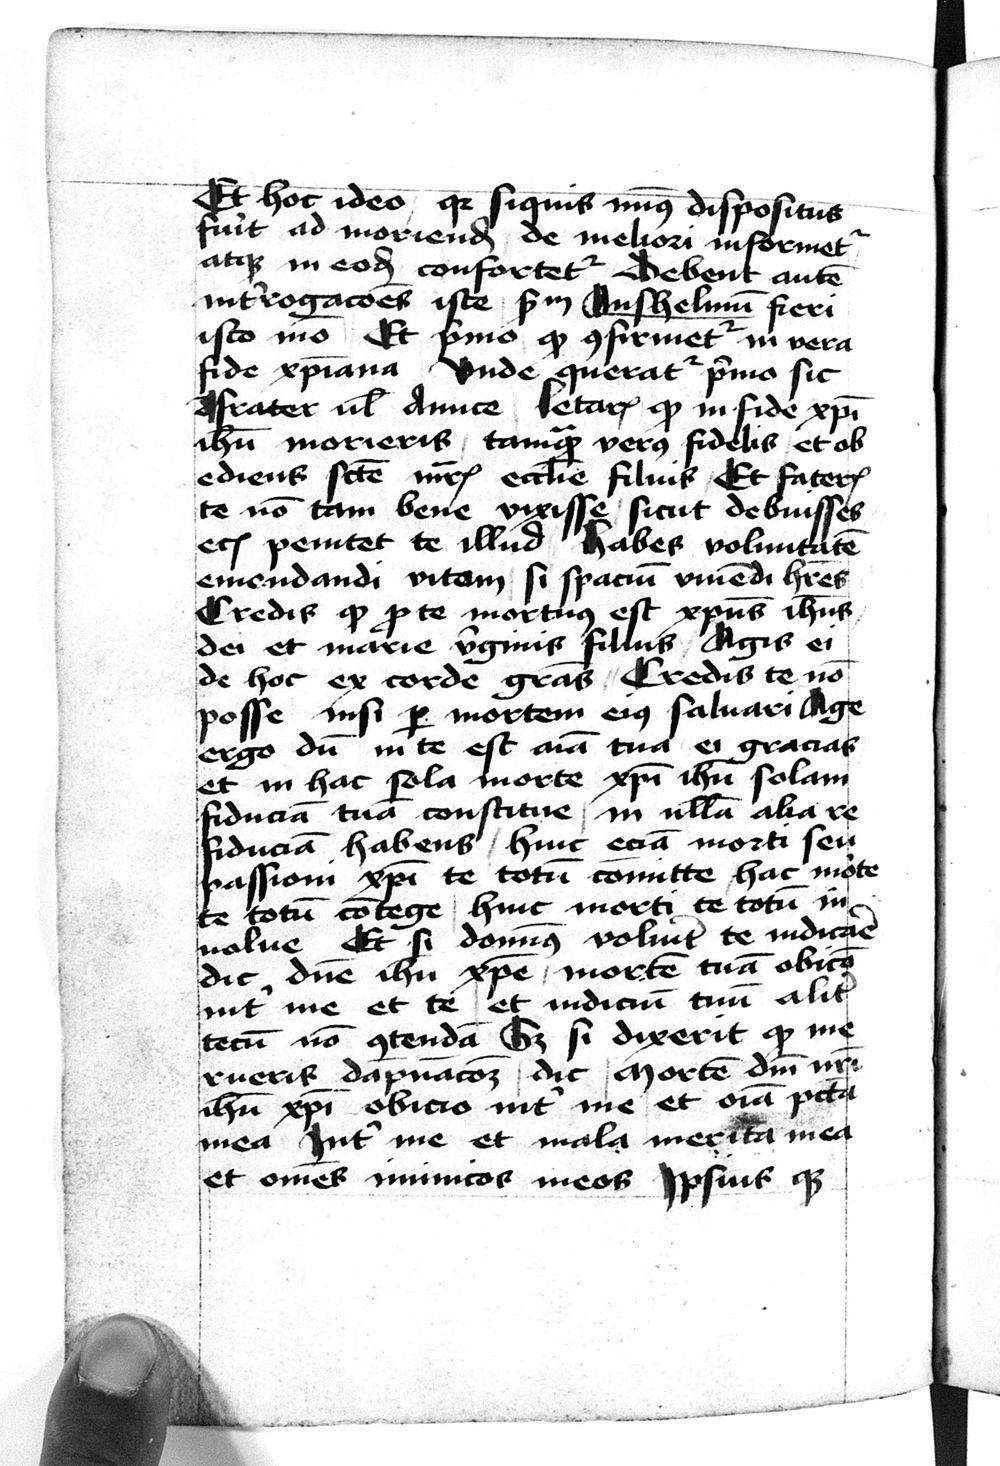 Et hoc ideo qr siquis minꝰ dispositus
fuit ad moriend de meliori informet
atqꝫ in eod confortet Debent autē
introgacōes iste ẜm Anshelmū fieri
isto mō Et p̄mo qͥ ꝯfirmet in vera
fide xp̄iana Vnde querat p̄mo sic
frater ul Amice letar qͥ in fide xp̄i
ihū morieris tamqͣ verꝰ fidelis et ob
ediens sctē mr̄is eccl̄ie filius Et fater
te nō tam bene vixisse sicut debuisses
penitet te illud habes voluntatē
emendandi vitam si spaciū viuēdi hr̄es
Credis qͥ ꝓ te mortuꝰ est xp̄us ih̄us
dei et marie v̓ginis filius Agis ei
de hoc ex corde gr̄as Credis te nō
posse nisi ꝑ mortem eiꝰ saluari Age
ergo dū in te est aīa tua ei gracias
et in hac sola morte xp̄i ihū solam
fiduciā tuā constitue in nullā alia re
fiduciā habens huic eciā morti seu
passioni xp̄i te totū cōmitte hac morte
te totū cōtege huic morti te totū in
uolue Et si dominꝰ voluit te iudicare
dic dn̄e ihu xp̄e mortē tuā obicio
int̓ me et te et iudiciū tuū alit̓
tecū nō ꝯtendā Sꝫ si dixerit qͥ me
rueris dāpnacōꝫ dic Mortē dn̄i nr̄i
ihū xp̄i obicio int̓ me et oīa pctā
mea Int̓ me et mala merita mea
et om̄es inimicos meos Ipsius qꝫ